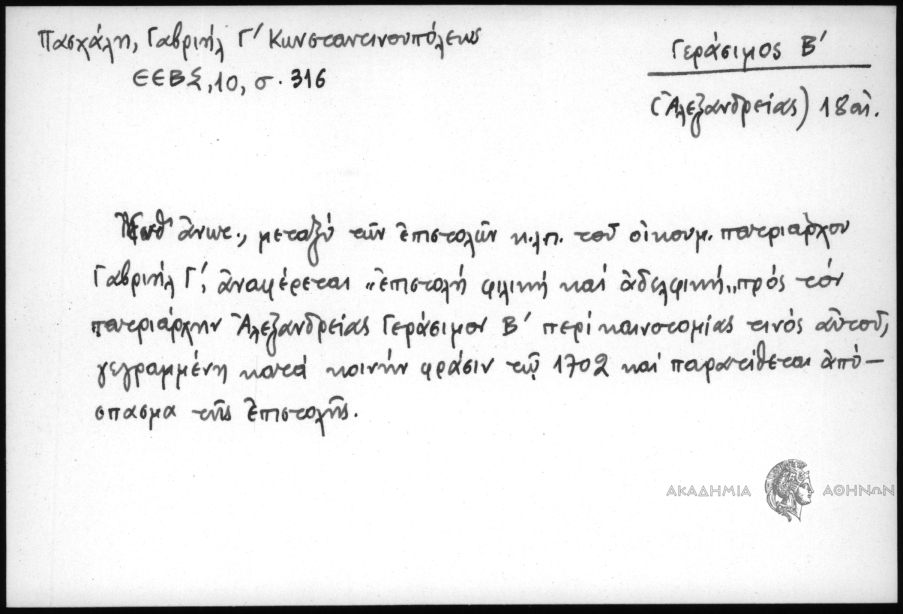 Πασχάλη, Γαβριήλ Γ' Κωνσταντινουπόλεως
ΕΕΒΣ, 10, σ. 316
Γεράσιμος Β'
(Ἀλεξανδρείας) 18 αἰ.
Ἔνθ' ἄνωτ., μεταξύ τῶν ἐπιστολῶν κ.λπ. τοῦ οἰκουμ. πατριάρχου
Γαβριήλ Γ', ἀναφέρεται "ἐπιστολή φιλική καί ἀδελφική" πρός τόν
πατριάρχην Ἀλεξανδρείας Γεράσιμον Β' περί καινοτομίας τινός αὐτοῦ,
γεγραμμένη κατά κοινήν φράσιν τῷ 1702 καί παρατίθεται ἀπό-
σπασμα τῆς ἐπιστολῆς.
ΑΚΑΔΗΜΙΑ ΑΘΗΝΩΝ